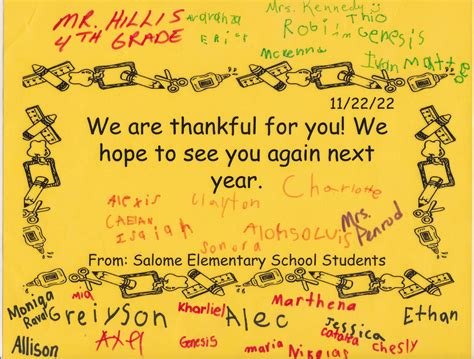 MR. HILLIS
4TH GRADE
Mrs. Kennedy
Thio
Robin Genesis
Eric
mckenna
Ivan Matteo
11/22/22
We are thankful for you! We
hope to see you again next
year.
Alexis Clayton Charlotte
CAEIAN
Isaiah Alonso Luis Mrs. Penrod
Sonora
From: Salome Elementary School Students
Moniga
Raval
mia
Greiyson
Kharliel
Alec
Marthena
Jessica
Ethan
Allison
Axel
Genesis
maria
Nikolas
catalia
chesly